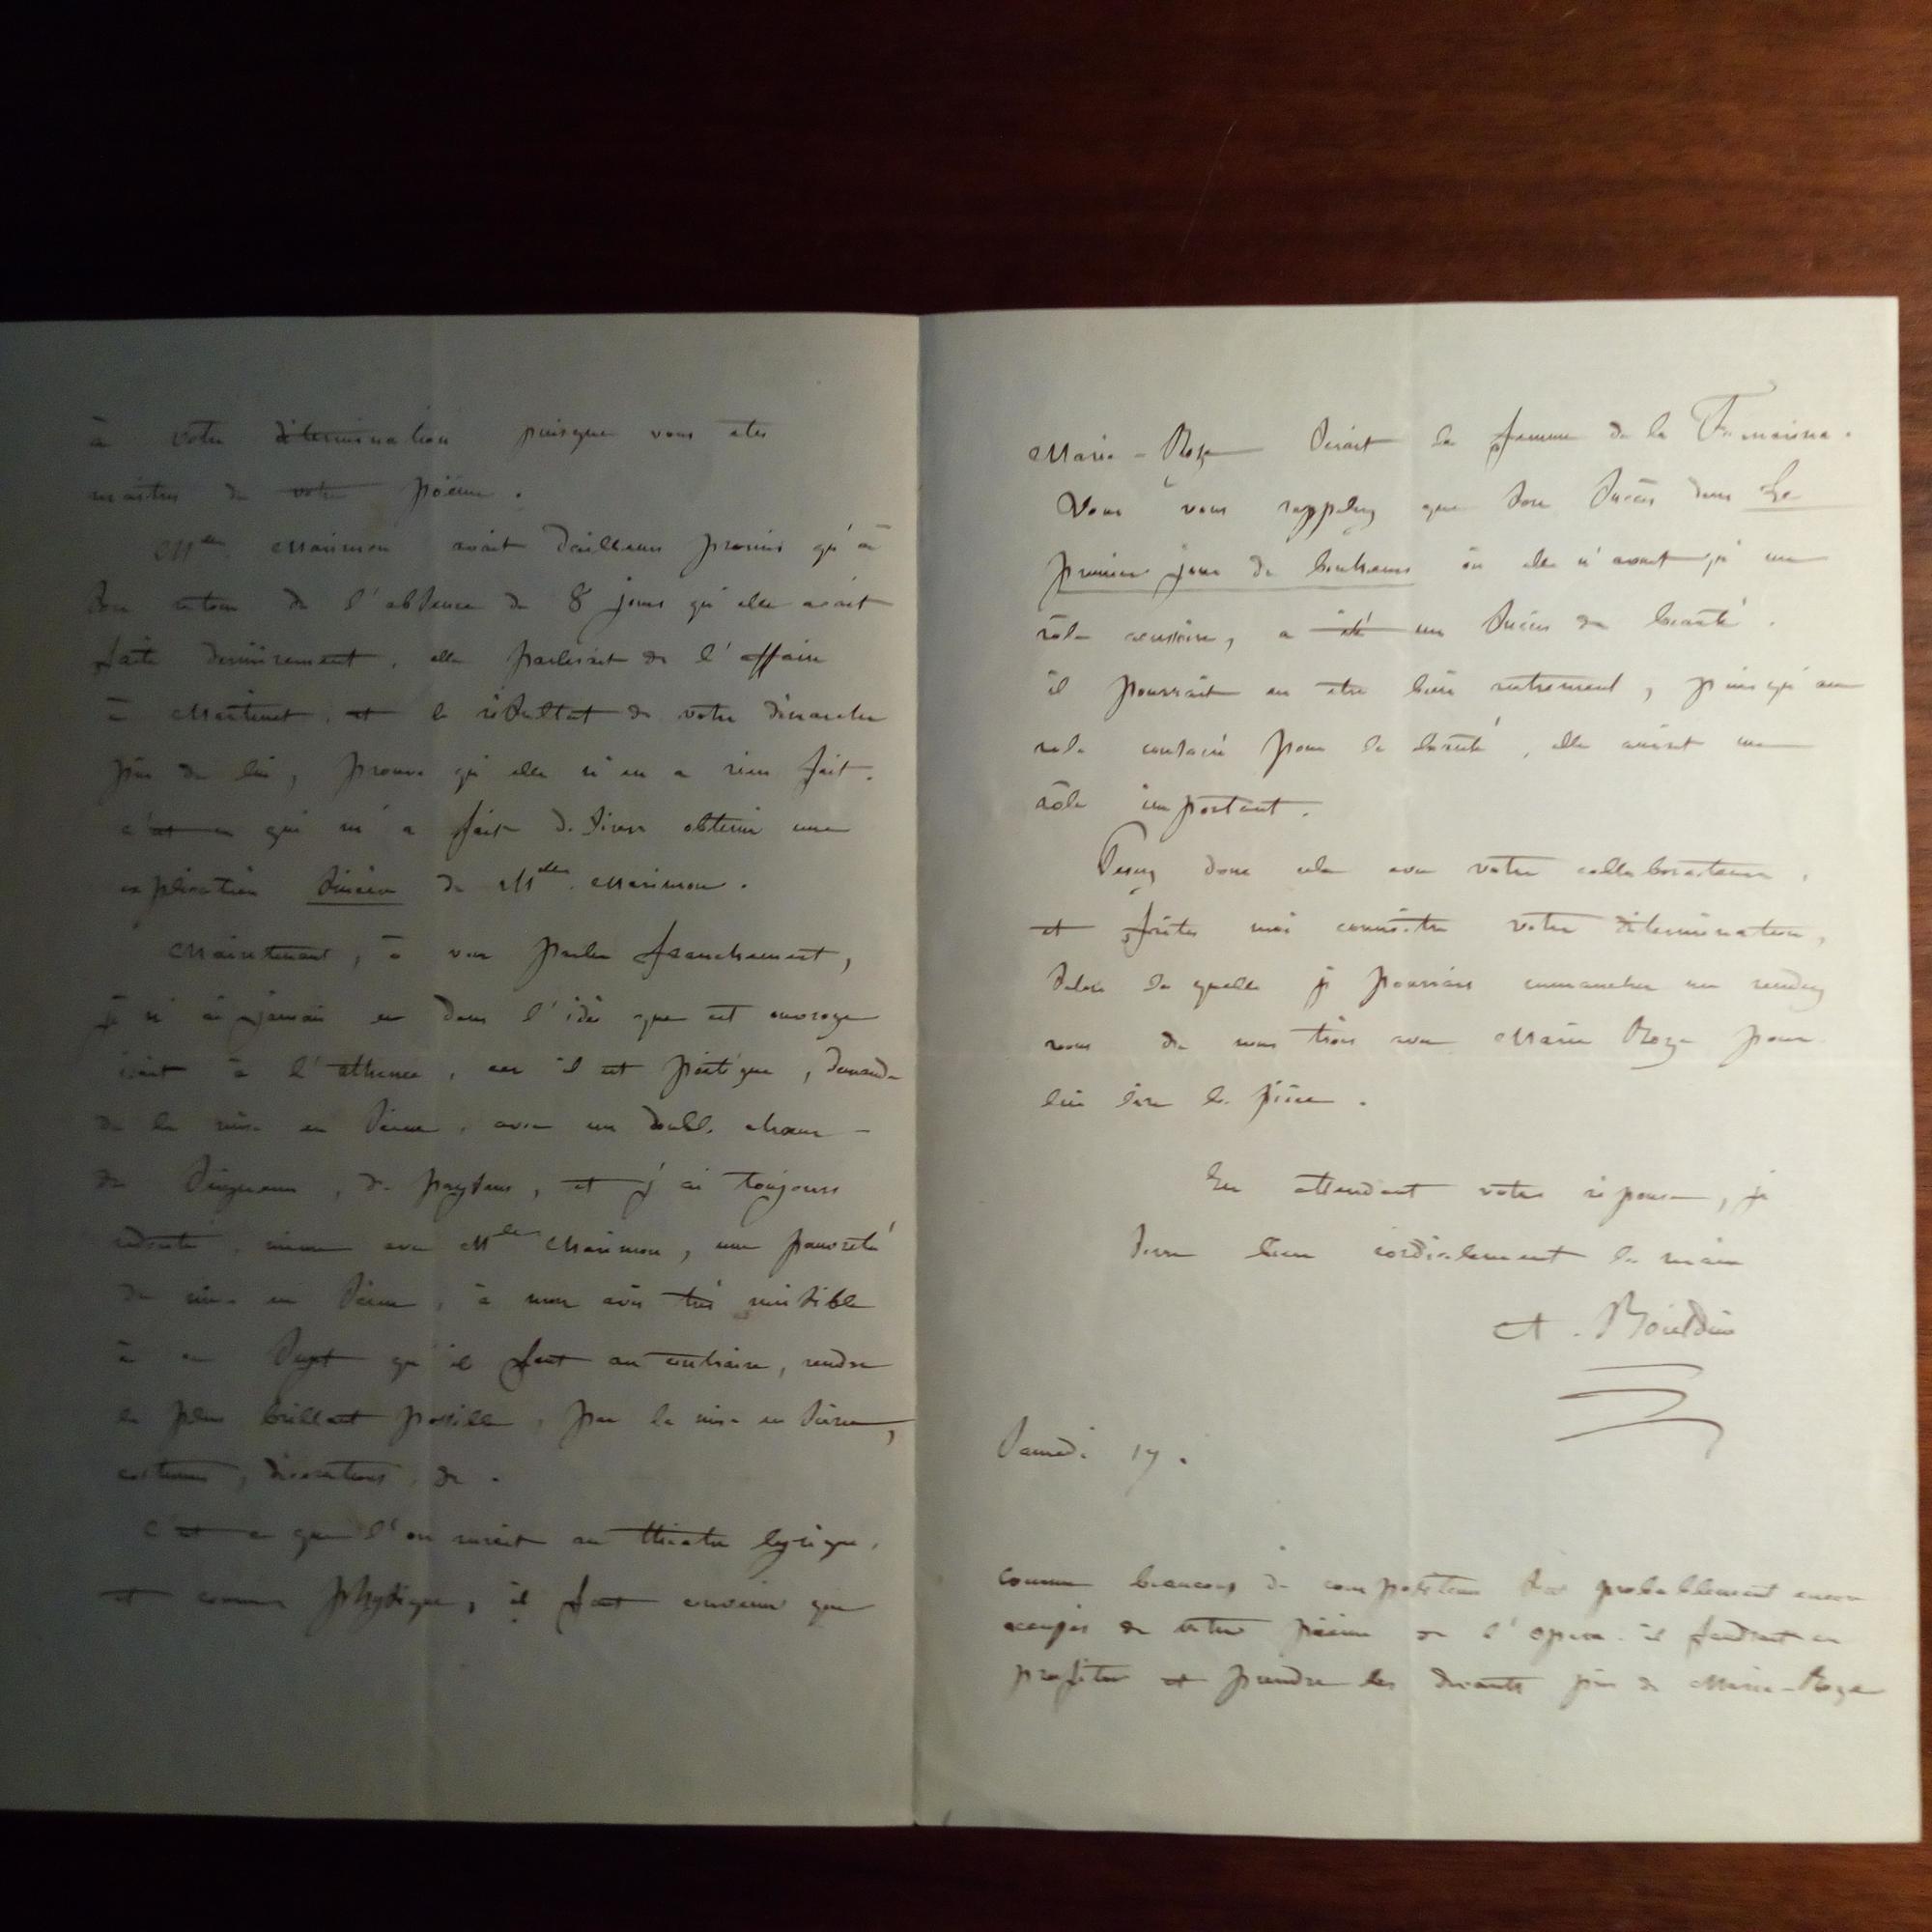 à votre détermination puisque vous êtes
maitres de votre poëme.
Mlle Marimon avait d'ailleurs promis qu'à
son retour de l'absence de 8 jours qu'elle avait
faite dernièrement, elle parlerait de l'affaire
à Martinet, et le résultat de votre démarche
près de lui, prouve qu'elle n'en a rien fait.
c'est ce qui m'a fait désirer obtenir une
explication sincère de Mlle Marimon.
Maintenant, à vous parler franchement,
je n'ai jamais eu dans l'idée que cet ouvrage
irait à l'athénée, car il est poëtique, demande
de la mise en scène, avec un double chœur
de seigneurs, de paysans, et j'ai toujours
redouté, même avec Mlle Marimon, une pauvreté
de mise en scène, à mon avis très nuisible
à ce sujet qu'il faut au contraire, rendre
le plus brillant possible, par la mise en scène,
costumes, décorations, &c.
C'est ce que l'on aurait au théatre lyrique,
et comme physique, il faut convenir que
Marie-Roze serait la femme de la
Vous vous rappelez que son succès dans Le
premier jour de bonheur où elle n'avait qu'un
rôle accessoire, a été un succès de beauté.
il pourrait en être bien autrement, puisqu'au
rôle consacré pour la beauté, elle aurait un
rôle important.
Pesez donc cela avec votre collaborateur,
et faites moi connaitre votre détermination,
selon laquelle je pourrais emmancher un rendez
vous de nous trois avec Marie Roze pour
lui lire la pièce.
En attendant votre réponse, je
serre bien cordialement la main
A. Boieldieu
Samedi 17.
comme beaucoup de compositeurs sont probablement encore
occupés de votre poëme de l'opera. il faudrait en
profiter et prendre les devants près de Marie-Roze